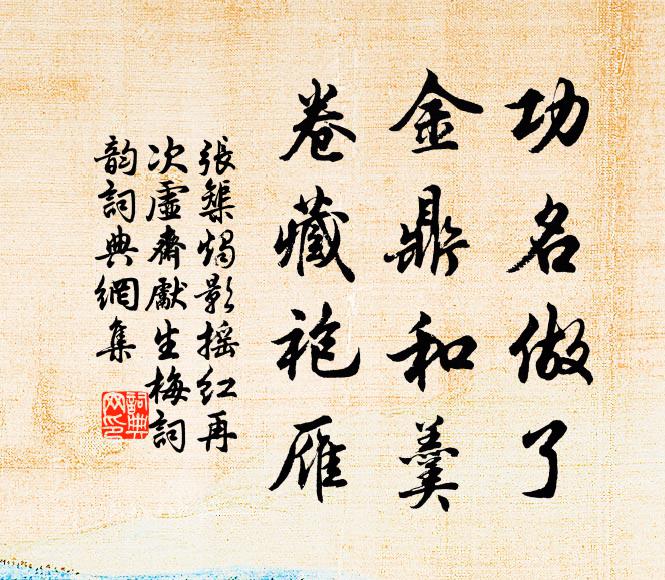 功名做了
金鼎和羹
卷藏袍雁
張榘燭影摇红再
次虛齋獻生梅詞
韵詞典網集
詞典
网印